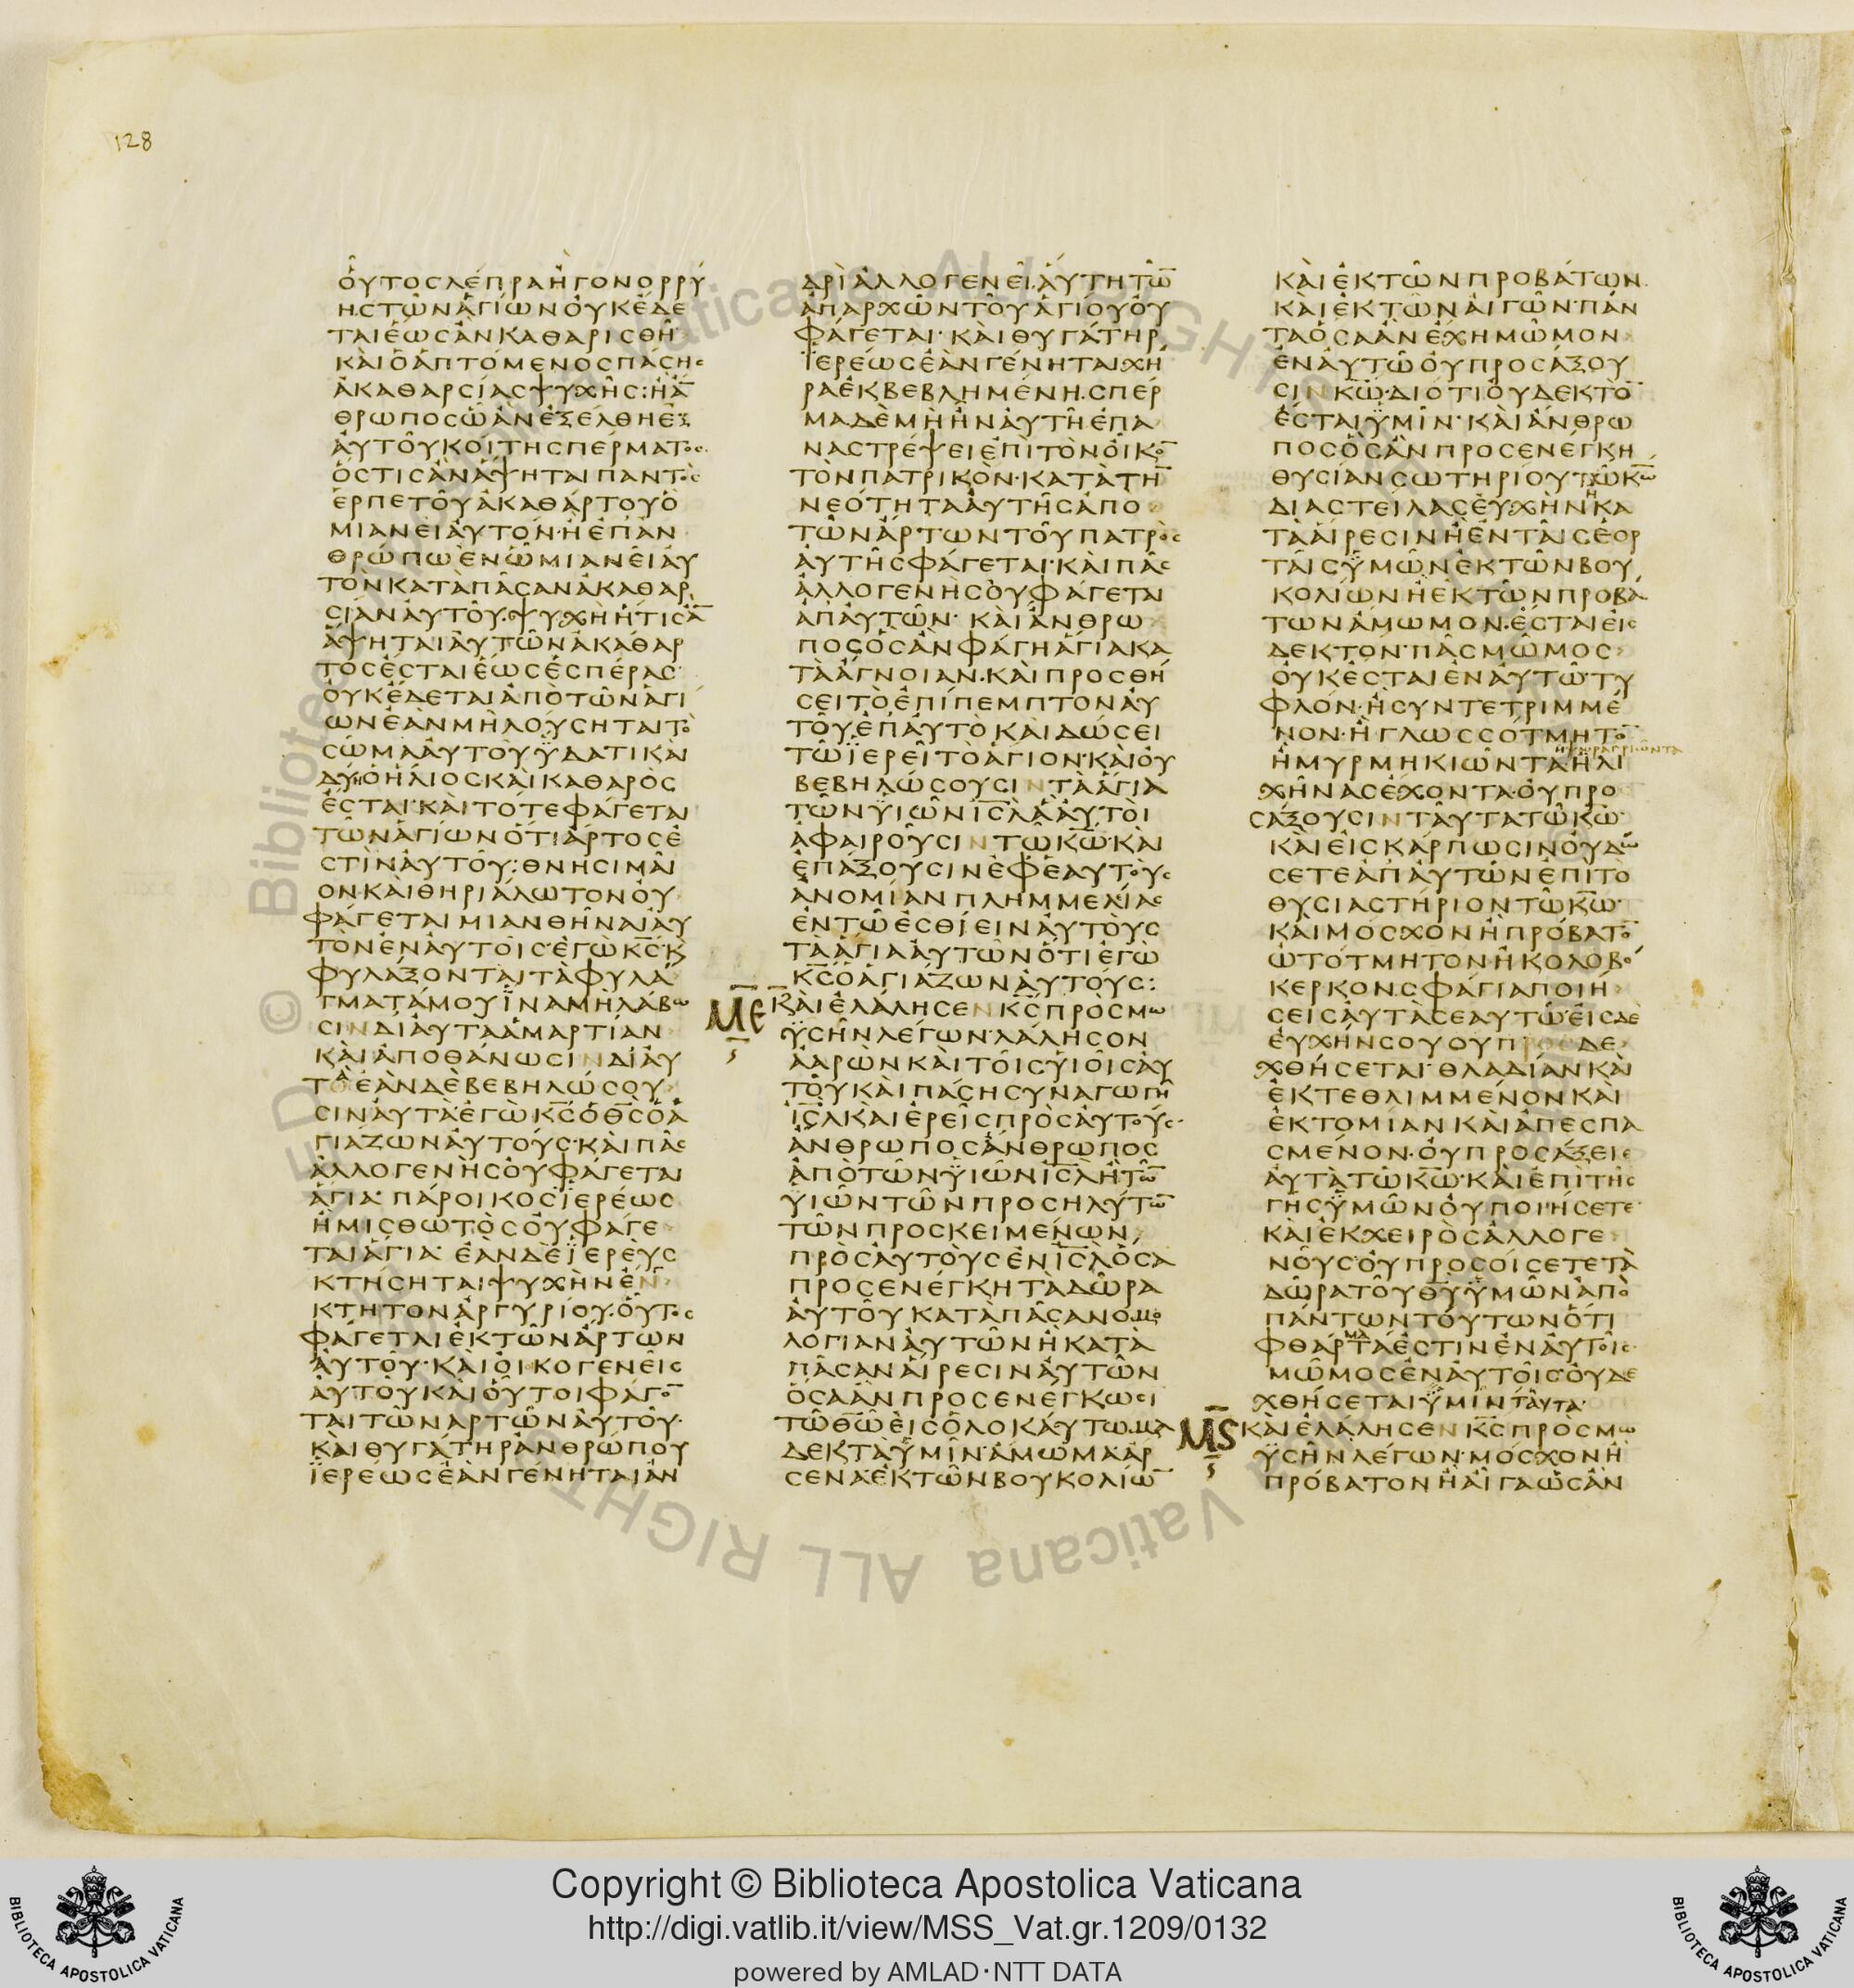 128
ΟΥΤΟΣ ΛΕΠΡΑ Η ΓΟΝΟΡΡΥ
ΗΣ ΤΩΝ ΑΓΙΩΝ ΟΥΚ ΕΔΕ
ΤΑΙ ΕΩΣ ΑΝ ΚΑΘΑΡΙΣΘΗ
ΚΑΙ Ο ΑΠΤΟΜΕΝΟΣ ΠΑΣΗΣ
ΑΚΑΘΑΡΣΙΑΣ ΨΥΧΗΣ: Η Α̅
ΘΡΩΠΟΣ Ω ΑΝ ΕΞΕΛΘΗ ΕΞ
ΑΥΤΟΥ ΚΟΙΤΗ ΣΠΕΡΜΑΤΟΣ
ΟΣΤΙΣ ΑΝ ΑΨΗΤΑΙ ΠΑΝΤΟΣ
ΕΡΠΕΤΟΥ ΑΚΑΘΑΡΤΟΥ Ο
ΜΙΑΝΕΙ ΑΥΤΟΝ· Η ΕΠ ΑΝ
ΘΡΩΠΩ ΕΝ Ω ΜΙΑΝΕΙ ΑΥ
ΤΟΝ ΚΑΤΑ ΠΑΣΑΝ ΑΚΑΘΑΡ
ΣΙΑΝ ΑΥΤΟΥ· ΨΥΧΗ ΗΤΙΣ Α̅
ΑΨΗΤΑΙ ΑΥΤΩΝ ΑΚΑΘΑΡ
ΤΟΣ ΕΣΤΑΙ ΕΩΣ ΕΣΠΕΡΑΣ·
ΟΥΚ ΕΔΕΤΑΙ ΑΠΟ ΤΩΝ ΑΓΙ
ΩΝ ΕΑΝ ΜΗ ΛΟΥΣΗΤΑΙ ΤΟ
ΣΩΜΑ ΑΥΤΟΥ ΥΔΑΤΙ ΚΑΙ
ΔΥΗ Ο ΗΛΙΟΣ ΚΑΙ ΚΑΘΑΡΟΣ
ΕΣΤΑΙ· ΚΑΙ ΤΟΤΕ ΦΑΓΕΤΑΙ
ΤΩΝ ΑΓΙΩΝ ΟΤΙ ΑΡΤΟΣ Ε
ΣΤΙΝ ΑΥΤΟΥ: ΘΝΗΣΙΜΑΙ
ΟΝ ΚΑΙ ΘΗΡΙΑΛΩΤΟΝ ΟΥ
ΦΑΓΕΤΑΙ ΜΙΑΝΘΗΝΑΙ ΑΥ
ΤΟΝ ΕΝ ΑΥΤΟΙΣ· ΕΓΩ Κ̅Σ̅· Κ
ΦΥΛΑΞΟΝΤΑΙ ΤΑ ΦΥΛΑ
ΓΜΑΤΑ ΜΟΥ ΙΝΑ ΜΗ ΛΑΒΩ
ΣΙΝ ΔΙ ΑΥΤΑ ΑΜΑΡΤΙΑΝ
ΚΑΙ ΑΠΟΘΑΝΩΣΙΝ ΔΙ ΑΥ
ΤΑ ΕΑΝ ΔΕ ΒΕΒΗΛΩΣΟΥ
ΣΙΝ ΑΥΤΑ· ΕΓΩ Κ̅Σ̅ Ο Θ̅Σ̅ Ο Α
ΓΙΑΖΩΝ ΑΥΤΟΥΣ· ΚΑΙ ΠΑΣ
ΑΛΛΟΓΕΝΗΣ ΟΥ ΦΑΓΕΤΑΙ
ΑΓΙΑ· ΠΑΡΟΙΚΟΣ ΙΕΡΕΩΣ
Η ΜΙΣΘΩΤΟΣ ΟΥ ΦΑΓΕ
ΤΑΙ ΑΓΙΑ· ΕΑΝ ΔΕ ΙΕΡΕΥΣ
ΚΤΗΣΗΤΑΙ ΨΥΧΗΝ ΕΝ
ΚΤΗΤΟΝ ΑΡΓΥΡΙΟΥ· ΟΥΤΟΣ
ΦΑΓΕΤΑΙ ΕΚ ΤΩΝ ΑΡΤΩΝ
ΑΥΤΟΥ· ΚΑΙ ΟΙΚΟΓΕΝΕΙΣ
ΑΥΤΟΥ ΚΑΙ ΟΥΤΟΙ ΦΑΓΟ̅
ΤΑΙ ΤΩΝ ΑΡΤΩΝ ΑΥΤΟΥ·
ΚΑΙ ΘΥΓΑΤΗΡ ΑΝΘΡΩΠΟΥ
ΙΕΡΕΩΣ ΕΑΝ ΓΕΝΗΤΑΙ ΑΝ
ΔΡΙ ΑΛΛΟΓΕΝΕΙ· ΑΥΤΗ ΤΩ̅
ΑΠΑΡΧΩΝ ΤΟΥ ΑΓΙΟΥ ΟΥ
ΦΑΓΕΤΑΙ· ΚΑΙ ΘΥΓΑΤΗΡ
ΙΕΡΕΩΣ ΕΑΝ ΓΕΝΗΤΑΙ ΧΗ
ΡΑ ΕΚΒΕΒΛΗΜΕΝΗ· ΣΠΕΡ
ΜΑ ΔΕ ΜΗ ΗΝ ΑΥΤΗ ΕΠΑ
ΝΑΣΤΡΕΨΕΙ ΕΠΙ ΤΟΝ ΟΙΚΟ̅
ΤΟΝ ΠΑΤΡΙΚΟΝ· ΚΑΤΑ ΤΗ̅
ΝΕΟΤΗΤΑ ΑΥΤΗΣ ΑΠΟ
ΤΩΝ ΑΡΤΩΝ ΤΟΥ ΠΑΤΡΟΣ
ΑΥΤΗΣ ΦΑΓΕΤΑΙ· ΚΑΙ ΠΑΣ
ΑΛΛΟΓΕΝΗΣ ΟΥ ΦΑΓΕΤΑΙ
ΑΠ ΑΥΤΩΝ· ΚΑΙ ΑΝΘΡΩ
ΠΟΣ ΟΣ ΑΝ ΦΑΓΗ ΑΓΙΑ ΚΑ
ΤΑ ΑΓΝΟΙΑΝ· ΚΑΙ ΠΡΟΣΘΗ
ΣΕΙ ΤΟ ΕΠΙΠΕΜΠΤΟΝ ΑΥ
ΤΟΥ ΕΠ ΑΥΤΟ ΚΑΙ ΔΩΣΕΙ
ΤΩ ΙΕΡΕΙ ΤΟ ΑΓΙΟΝ· ΚΑΙ ΟΥ
ΒΕΒΗΛΩΣΟΥΣΙΝ ΤΑ ΑΓΙΑ
ΤΩΝ ΥΙΩΝ Ι̅Σ̅Λ̅ Α ΑΥΤΟΙ
ΑΦΑΙΡΟΥΣΙΝ ΤΩ Κ̅Ω̅· ΚΑΙ
ΕΠΑΞΟΥΣΙΝ ΕΦ ΕΑΥΤΟΥΣ
ΑΝΟΜΙΑΝ ΠΛΗΜΜΕΛΙΑΣ
ΕΝ ΤΩ ΕΣΘΙΕΙΝ ΑΥΤΟΥΣ
ΤΑ ΑΓΙΑ ΑΥΤΩΝ ΟΤΙ ΕΓΩ
Κ̅Σ̅ Ο ΑΓΙΑΖΩΝ ΑΥΤΟΥΣ:
Μ̅Ε̅ ΚΑΙ ΕΛΑΛΗΣΕΝ Κ̅Σ̅ ΠΡΟΣ ΜΩ
ΥΣΗΝ ΛΕΓΩΝ· ΛΑΛΗΣΟΝ
ΑΑΡΩΝ ΚΑΙ ΤΟΙΣ ΥΙΟΙΣ ΑΥ
ΤΟΥ ΚΑΙ ΠΑΣΗ ΣΥΝΑΓΩΓΗ
Ι̅Σ̅Λ̅ ΚΑΙ ΕΡΕΙΣ ΠΡΟΣ ΑΥΤΟΥΣ·
ΑΝΘΡΩΠΟΣ ΑΝΘΡΩΠΟΣ
ΑΠΟ ΤΩΝ ΥΙΩΝ Ι̅Σ̅Λ̅ Η ΤΩ̅
ΥΙΩΝ ΤΩΝ ΠΡΟΣΗΛΥΤΩ̅
ΤΩΝ ΠΡΟΣΚΕΙΜΕΝΩΝ
ΠΡΟΣ ΑΥΤΟΥΣ ΕΝ Ι̅Σ̅Λ̅ ΟΣ Α
ΠΡΟΣΕΝΕΓΚΗ ΤΑ ΔΩΡΑ
ΑΥΤΟΥ ΚΑΤΑ ΠΑΣΑΝ ΟΜΟ
ΛΟΓΙΑΝ ΑΥΤΩΝ Η ΚΑΤΑ
ΠΑΣΑΝ ΑΙΡΕΣΙΝ ΑΥΤΩΝ
ΟΣΑ ΑΝ ΠΡΟΣΕΝΕΓΚΩΣΙ
ΤΩ Θ̅Ω̅ ΕΙΣ ΟΛΟΚΑΥΤΩΜΑ
ΔΕΚΤΑ ΥΜΙΝ· ΑΜΩΜΑ· ΑΡ
ΣΕΝΑ ΕΚ ΤΩΝ ΒΟΥΚΟΛΙΩ̅
ΚΑΙ ΕΚ ΤΩΝ ΠΡΟΒΑΤΩΝ
ΚΑΙ ΕΚ ΤΩΝ ΑΙΓΩΝ· ΠΑΝ
ΤΑ ΟΣΑ ΑΝ ΕΧΗ ΜΩΜΟΝ
ΕΝ ΑΥΤΩ ΟΥ ΠΡΟΣΑΞΟΥ
ΣΙΝ Κ̅Ω̅· ΔΙΟΤΙ ΟΥ ΔΕΚΤΟ̅
ΕΣΤΑΙ ΥΜΙΝ· ΚΑΙ ΑΝΘΡΩ
ΠΟΣ ΟΣ ΑΝ ΠΡΟΣΕΝΕΓΚΗ
ΘΥΣΙΑΝ ΣΩΤΗΡΙΟΥ ΤΩ Κ̅Ω̅
ΔΙΑΣΤΕΙΛΑΣ ΕΥΧΗΝ Η ΚΑ
ΤΑ ΑΙΡΕΣΙΝ Η ΕΝ ΤΑΙΣ ΕΟΡ
ΤΑΙΣ ΥΜΩΝ ΕΚ ΤΩΝ ΒΟΥ
ΚΟΛΙΩΝ Η ΕΚ ΤΩΝ ΠΡΟΒΑ
ΤΩΝ ΑΜΩΜΟΝ· ΕΣΤΑΙ ΕΙΣ
ΔΕΚΤΟΝ· ΠΑΣ ΜΩΜΟΣ
ΟΥΚ ΕΣΤΑΙ ΕΝ ΑΥΤΩ· ΤΥ
ΦΛΟΝ· Η ΣΥΝΤΕΤΡΙΜΜΕ
ΝΟΝ· Η ΓΛΩΣΣΟΤΜΗΤΟ̅
Η ΜΥΡΜΗΚΙΩΝΤΑ Η ΛΙ
ΧΗΝΑΣ ΕΧΟΝΤΑ· ΟΥ ΠΡΟ
ΣΑΞΟΥΣΙΝ ΤΑΥΤΑ ΤΩ Κ̅Ω̅·
ΚΑΙ ΕΙΣ ΚΑΡΠΩΣΙΝ ΟΥ ΔΩ
ΣΕΤΕ ΑΠ ΑΥΤΩΝ ΕΠΙ ΤΟ
ΘΥΣΙΑΣΤΗΡΙΟΝ ΤΩ Κ̅Ω̅·
ΚΑΙ ΜΟΣΧΟΝ Η ΠΡΟΒΑΤΟ̅
ΩΤΟΤΜΗΤΟΝ· Η ΚΟΛΟΒΟ
ΚΕΡΚΟΝ· ΣΦΑΓΙΑ ΠΟΙΗ
ΣΕΙΣ ΑΥΤΑ ΣΕΑΥΤΩ· ΕΙΣ ΔΕ
ΕΥΧΗΝ ΣΟΥ ΟΥ ΠΡΟΣΔΕ
ΧΘΗΣΕΤΑΙ· ΘΛΑΔΙΑΝ ΚΑΙ
ΕΚΤΕΘΛΙΜΜΕΝΟΝ ΚΑΙ
ΕΚΤΟΜΙΑΝ ΚΑΙ ΑΠΕΣΠΑ
ΣΜΕΝΟΝ· ΟΥ ΠΡΟΣΑΞΕΙΣ
ΑΥΤΑ ΤΩ Κ̅Ω̅· ΚΑΙ ΕΠΙ ΤΗΣ
ΓΗΣ ΥΜΩΝ ΟΥ ΠΟΙΗΣΕΤΕ·
ΚΑΙ ΕΚ ΧΕΙΡΟΣ ΑΛΛΟΓΕ
ΝΟΥΣ· ΟΥ ΠΡΟΣΟΙΣΕΤΕ ΤΑ
ΔΩΡΑ ΤΟΥ Θ̅Υ̅ ΥΜΩΝ ΑΠΟ
ΠΑΝΤΩΝ ΤΟΥΤΩΝ ΟΤΙ
ΦΘΑΡΜΑΤΑ ΕΣΤΙΝ ΕΝ ΑΥΤΟΙΣ·
ΜΩΜΟΣ ΕΝ ΑΥΤΟΙΣ· ΟΥ ΔΕ
ΧΘΗΣΕΤΑΙ ΥΜΙΝ ΤΑΥΤΑ·
Μ̅Ϛ̅ ΚΑΙ ΕΛΑΛΗΣΕΝ Κ̅Σ̅ ΠΡΟΣ ΜΩ
ΥΣΗΝ ΛΕΓΩΝ· ΜΟΣΧΟΝ Η
ΠΡΟΒΑΤΟΝ Η ΑΙΓΑ ΩΣ ΑΝ
© Biblioteca Vaticana ALL RIGHT
Copyright © Biblioteca Apostolica Vaticana
http://digi.vatlib.it/view/MSS_Vat.gr.1209/0132
powered by AMLAD·NTT DATA
BIBLIOTECA APOSTOLICA VATICANA
BIBLIOTECA APOSTOLICA VATICANA